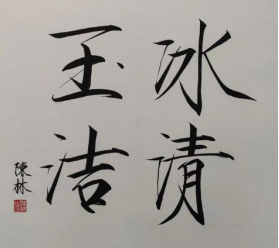 冰清
玉洁
陈林